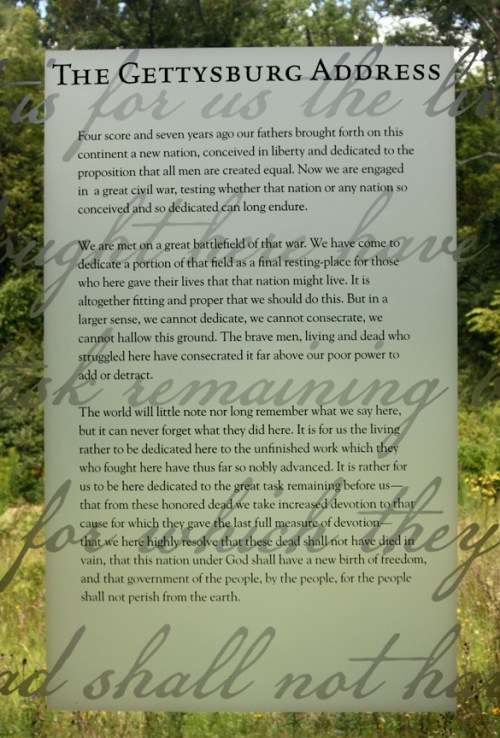 THE GETTYSBURG ADDRESS
it is for us the liv
Four score and seven years ago our fathers brought forth on this
continent a new nation, conceived in liberty and dedicated to the
proposition that all men are created equal. Now we are engaged
in a great civil war, testing whether that nation or any nation so
conceived and so dedicated can long endure.
We are met on a great battlefield of that war. We have come to
dedicate a portion of that field as a final resting-place for those
who here gave their lives that that nation might live. It is
altogether fitting and proper that we should do this. But in a
larger sense, we cannot dedicate, we cannot consecrate, we
cannot hallow this ground. The brave men, living and dead who
struggled here have consecrated it far above our poor power to
add or detract.
The world will little note nor long remember what we say here,
but it can never forget what they did here. It is for us the living
rather to be dedicated here to the unfinished work which they
who fought here have thus far so nobly advanced. It is rather for
us to be here dedicated to the great task remaining before us—
that from these honored dead we take increased devotion to that
cause for which they gave the last full measure of devotion—
that we here highly resolve that these dead shall not have died in
vain, that this nation under God shall have a new birth of freedom,
and that government of the people, by the people, for the people
shall not perish from the earth.
ought here have
ask remaining
for which they
ad shall not ha